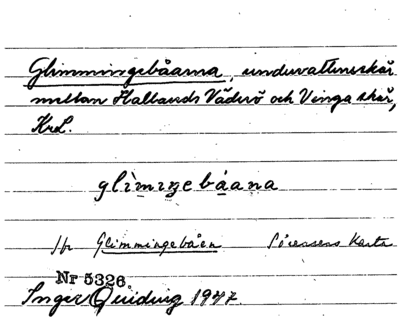 Glimmingebåarna, undervattensskär
mellan Hallands Väderö och Vinga skär,
KrL.
glìmiŋebåana
Jfr Glimmingebåen Sörensens Karta
Nr 5326
Inger Quiding 1947.